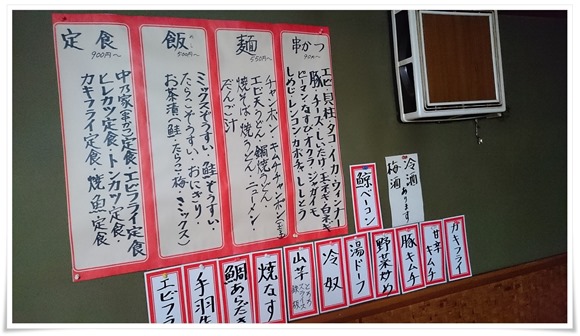 串かつ
90円〜
エビ・貝柱・タコ・イカ・ウィンナー
豚・チーズ・しいたけ・玉ネギ・白ネギ
ピーマン・なすび・オクラ・ジャガイモ
しめじ・レンコン・カボチャ・ししとう
麺
550円〜
チャンポン・キムチチャンポン
エビ天うどん・鍋焼うどん・
焼そば・焼うどん・ニューメン・
だんご汁
飯
めし
500円〜
ミックスぞうすい・鮭ぞうすい・
たらこぞうすい・おにぎり・
お茶漬(鮭・たらこ・梅・ミックス)
定食
900円〜
中乃家串かつ定食・エビフライ定食
ヒレカツ定食・トンカツ定食・
カキフライ定食・焼魚定食
冷酒
梅酒
あります
鯨ベーコン
カキフライ
甘辛キムチ
豚キムチ
野菜炒め
湯ドーフ
冷奴
山芋
とろろ
スライス
鉄板
焼なす
鯛あらだき
手羽
エビフラ